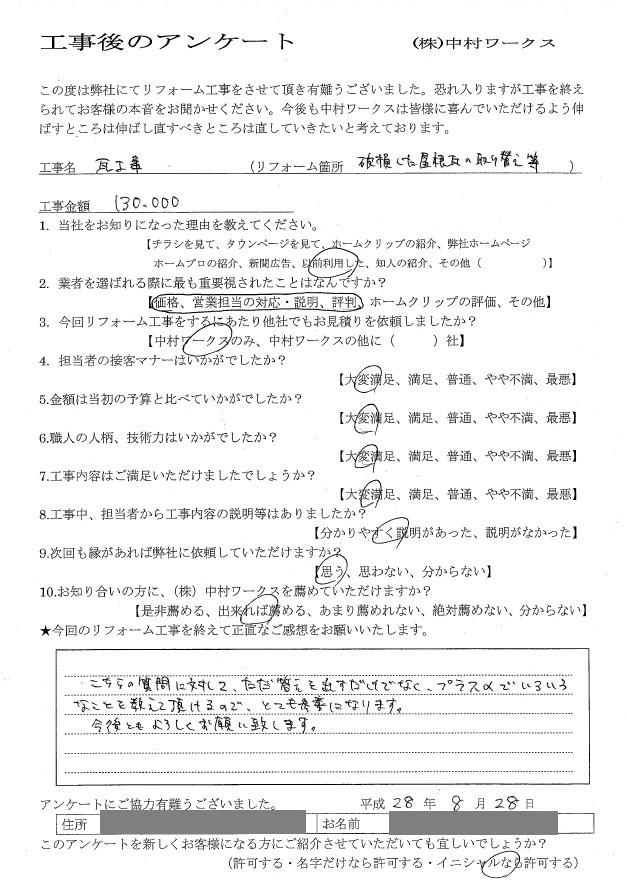 工事後のアンケート　(株)中村ワークス
この度は弊社にてリフォーム工事をさせて頂き有難うございました。恐れ入りますが工事を終え
られてお客様の本音をお聞かせください。今後も中村ワークスは皆様に喜んでいただけるよう伸
ばすところは伸ばし直すべきところは直していきたいと考えております。
工事名　瓦工事　(リフォーム箇所　破損した屋根瓦の取り替え等　)
工事金額　130.000
1. 当社をお知りになった理由を教えてください。
【チラシを見て、タウンページを見て、ホームクリップの紹介、弊社ホームページ
ホームプロの紹介、新聞広告、以前利用した、知人の紹介、その他（　　　）】
2. 業者を選ばれる際に最も重要視されたことはなんですか？
【価格、営業担当の対応・説明、評判、ホームクリップの評価、その他】
3. 今回リフォーム工事をするにあたり他社でもお見積りを依頼しましたか？
【中村ワークスのみ、中村ワークスの他に（　　）社】
4. 担当者の接客マナーはいかがでしたか？
【大変満足、満足、普通、やや不満、最悪】
5.金額は当初の予算と比べていかがでしたか？
【大変満足、満足、普通、やや不満、最悪】
6.職人の人柄、技術力はいかがでしたか？
【大変満足、満足、普通、やや不満、最悪】
7.工事内容はご満足いただけましたでしょうか？
【大変満足、満足、普通、やや不満、最悪】
8.工事中、担当者から工事内容の説明等はありましたか？
【分かりやすく説明があった、説明がなかった】
9.次回も縁があれば弊社に依頼していただけますか？
【思う、思わない、分からない】
10.お知り合いの方に、（株）中村ワークスを薦めていただけますか？
【是非薦める、出来れば薦める、あまり薦めれない、絶対薦めない、分からない】
★今回のリフォーム工事を終えて正直なご感想をお願いいたします。
こちらの質問に対して、ただ答えを出すだけでなく、プラスαでいろいろ
なことを教えて頂けるので、とても参考になります。
今後ともよろしくお願い致します。
アンケートにご協力有難うございました。　平成 28 年 8 月 28 日
住所　お名前
このアンケートを新しくお客様になる方にご紹介させていただいても宜しいでしょうか？
(許可する・名字だけなら許可する・イニシャルなら許可する)